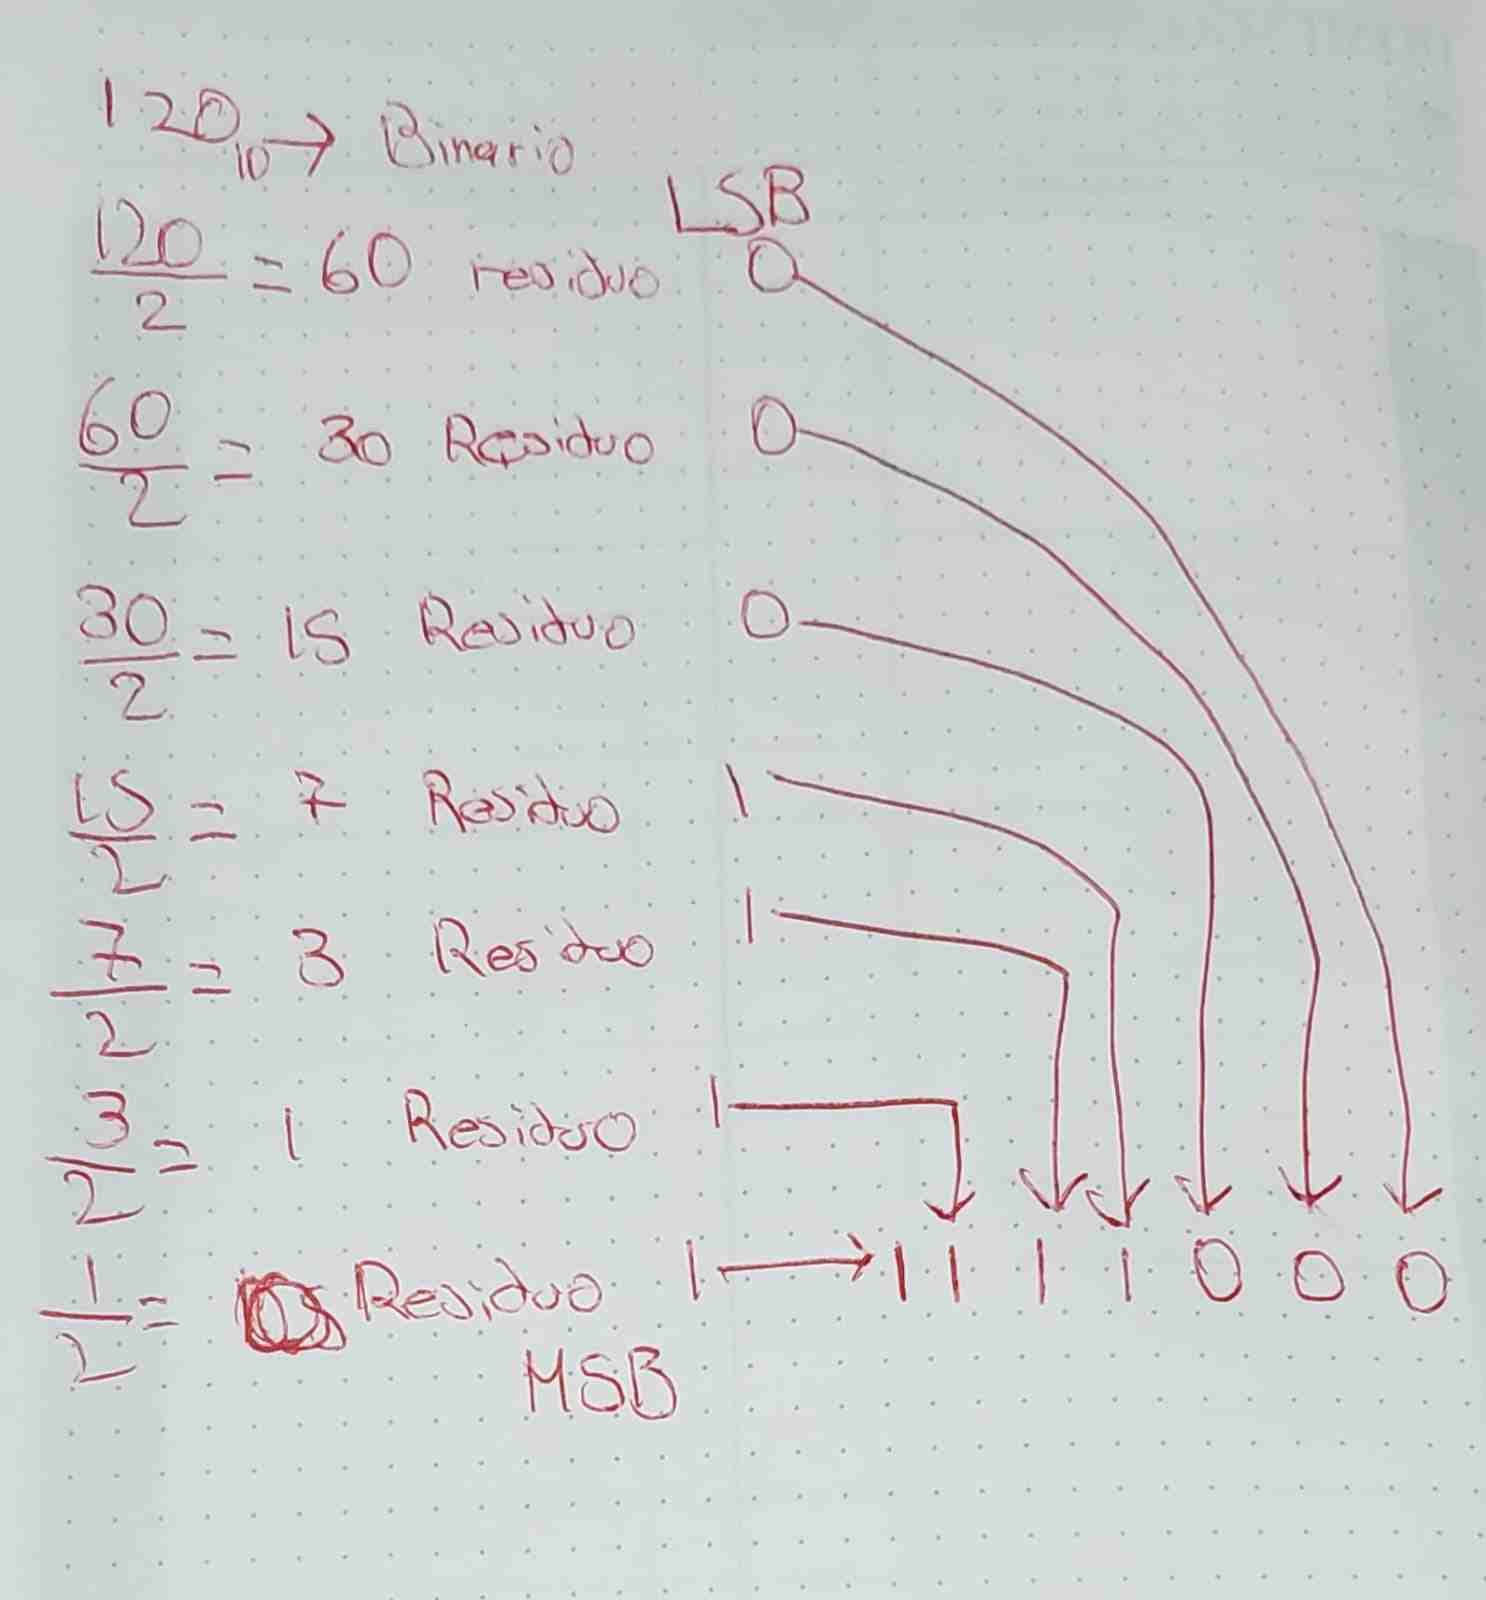 120₁₀ → Binario
LSB
120/2 = 60 residuo 0
60/2 = 30 Residuo 0
30/2 = 15 Residuo 0
15/2 = 7 Residuo 1
7/2 = 3 Residuo 1
3/2 = 1 Residuo 1
1/2 = 0 Residuo 1 → 1 1 1 1 0 0 0
MSB